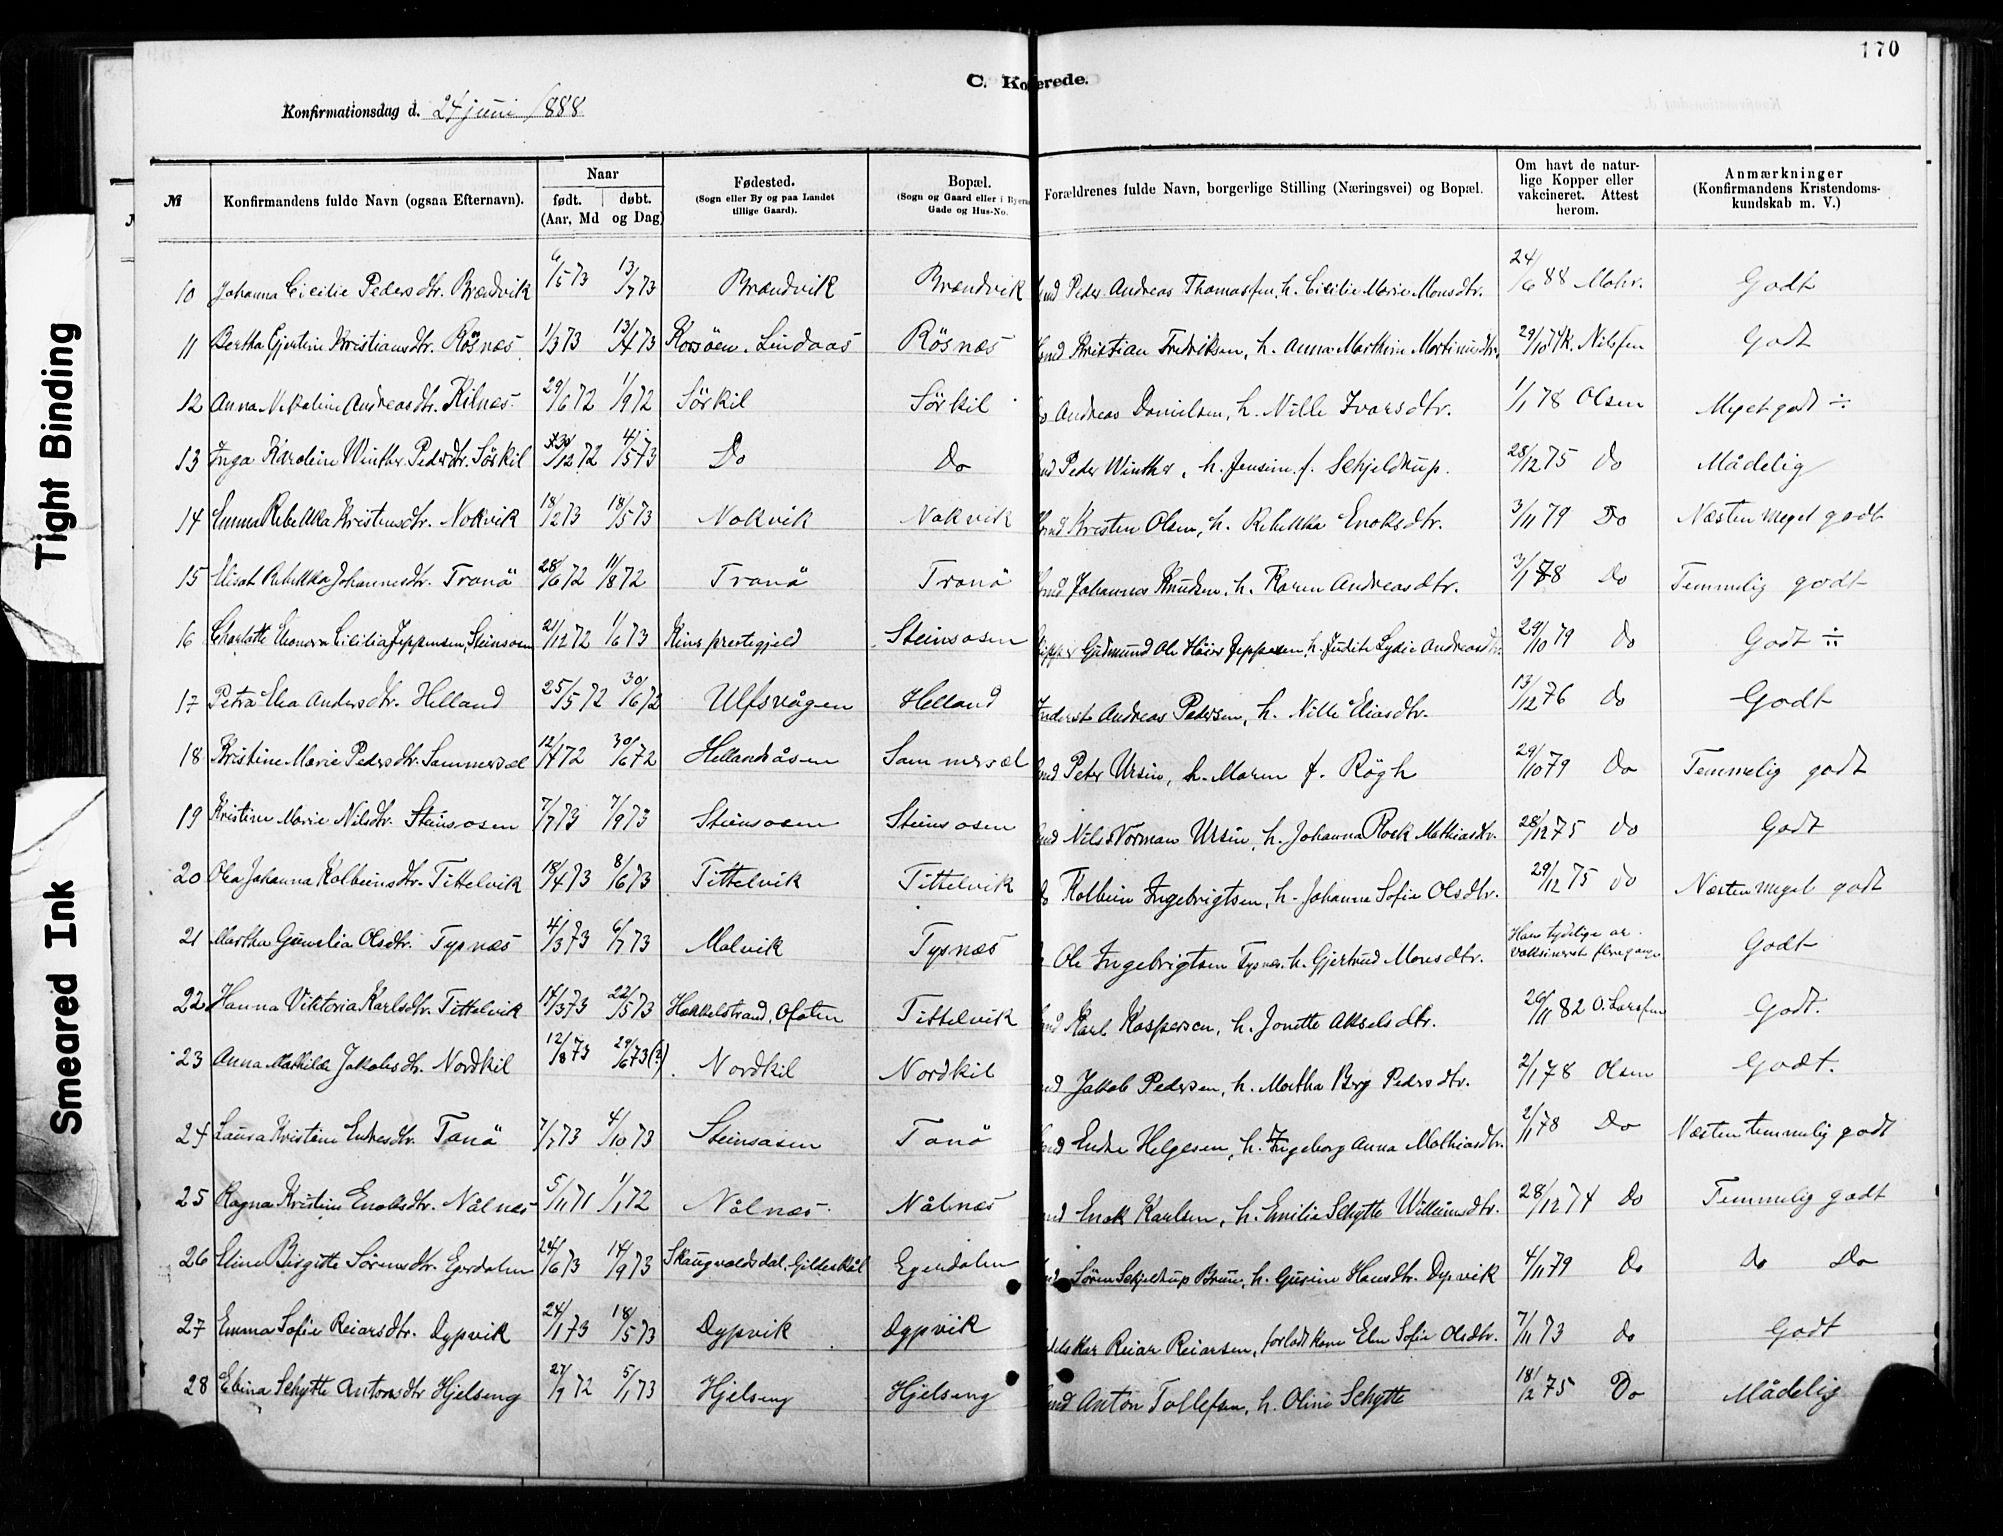 170
C. Ko erede.
Konfirmationsdag d. 24 juni 1888
№ | Konfirmandens fulde Navn (ogsaa Efternavn). | Naar født. (Aar, Md | døbt. og Dag) | Fødested. (Sogn eller By og paa Landet tillige Gaard). | Bopæl. (Sogn og Gaard eller i Byerne Gade og Hus-No. | Forældrenes fulde Navn, borgerlige Stilling (Næringsvei) og Bopæl. | Om havt de naturlige Kopper eller vakcineret. Attest herom. | Anmærkninger (Konfirmandens Kristendomskundskab m. V.)
10 Johanna Cicilie Pedersdtr. Brændvik 6/5 73 13/7 73 Brændvik Brændvik Peder Andreas Thomassen, h. Cicilie Marie Monsdtr. 24/6 88 Mohr. Godt
11 Bertha Gjertine Kristiansdtr. Rösnæs 1/3 73 13/4 73 Korsöen, Lindaas Rösnæs Kristian Fredriksen, h. Anna Marthine Martinusdtr. 29/10 74 K. Nilsen Godt
12 Anna Nikoline Andreasdtr. Kilnæs 29/6 72 1/9 72 Sörkil Sörkil Andreas Danielsen, h. Nille Ivarsdtr. 1/1 78 Olsen Meget godt ÷
13 Inga Karoline Winther Pedersdtr. Sörkil 30/12 72 4/5 73 Do Do Peder Winther, h. Jensine f. Schjeldrup. 28/12 75 Do Mådelig
14 Emma Rebekka Kristensdtr. Nokvik 18/2 73 18/5 73 Nokvik Nokvik Kristen Olsen, h. Rebekka Enoksdtr. 3/11 79 Do Næsten meget godt
15 Elisat Rebekka Johannesdtr. Tranö 28/6 72 11/8 72 Tranö Tranö Johannes Knudsen, h. Karen Andreasdtr. 3/1 78 Do Temmelig godt
16 Charlotte Eleonora Cicilia Jeppesen, Steinsosen 21/12 72 1/6 73 præstegjeld Steinsosen Gudmund Ole Häier Jeppesen, h. Judith Lydie Andreasdtr. 29/10 79 Do Godt ÷
17 Petra Elea Andersdtr. Helland 25/5 72 30/6 72 Ulfsvågen Helland Inderst Andreas Pedersen, h. Nille Eliasdtr. 13/12 76 Do Godt
18 Kristine Marie Pedersdtr. Sammersæl 12/4 72 30/6 72 Hellandsåsen Sommersæl Peter Ursin, h. Maren f. Rögh 29/10 79 Do Temmelig godt
19 Kristine Marie Nilsdtr. Steinsosen 7/7 73 7/9 73 Steinsosen Steinsosen Nils Norman Ursin, h. Johanna Rosk Mathiasdtr. 28/12 75 Do Godt
20 Olea Johanna Kolbeinsdtr. Tittelvik 18/4 73 8/6 73 Tittelvik Tittelvik Kolbein Ingebrigtsen, h. Johanna Sofie Olsdtr. 29/12 75 Do Næsten meget godt
21 Martha Gunelia Olsdtr. Tysnæs 4/3 73 6/7 73 Malvik Tysnæs Ole Ingebrigtsen Tysnæs, h. Gjertrud Monsdtr. Har tydelige ar. Vaksineret flere gange Godt
22 Hanna Viktoria Karlsdtr. Tittelvik 14/3 73 22/5 73 Hækkelstrand, Ofoten Tittelvik Karl Kaspersen, h. Jonette Akselsdtr. 26/11 82 O. Larsen Godt.
23 Anna Mathilde Jakobsdtr. Nordkil 12/8 73 29/6 73(?) Nordkil Nordkil Jakob Pedersen, h. Martha Berg Pedersdtr. 2/1 78 Olsen Godt.
24 Laura Kristine Endresdtr. Tanö 7/7 73 4/10 73 Steinsosen Tanö Endre Helgesen, h. Ingeborg Anna Mathiasdtr. 2/1 78 Do Næsten temmelig godt
25 Ragna Kristine Enoksdtr. Nålnæs 5/11 71 1/1 72 Nålnæs Nålnæs Enok Karlsen, h. Emilie Schytte Willumsdtr. 28/12 74 Do Temmelig godt
26 Eline Birgitte Sörensdtr. Egerdalen 24/6 73 14/9 73 Skaugvoldsdal, Gildeskål Egerdalen Sören Schjeldrup Bruun, h. Gusine Hansdtr. Dypvik 4/11 79 Do Do Do
27 Emma Sofie Reiarsdtr. Dypvik 24/1 73 18/5 73 Dypvik Dypvik Reiar Reiarsen, forladt kone Elen Sofie Olsdtr. 7/11 73 do Godt
28 Ebina Schytte Antonsdtr Hjelseng 27/7 72 5/1 73 Hjelseng Hjelseng Anton Tollefsen, h. Oline Schytte 18/2 75 Do Mådelig
Tight Binding
Smeared Ink